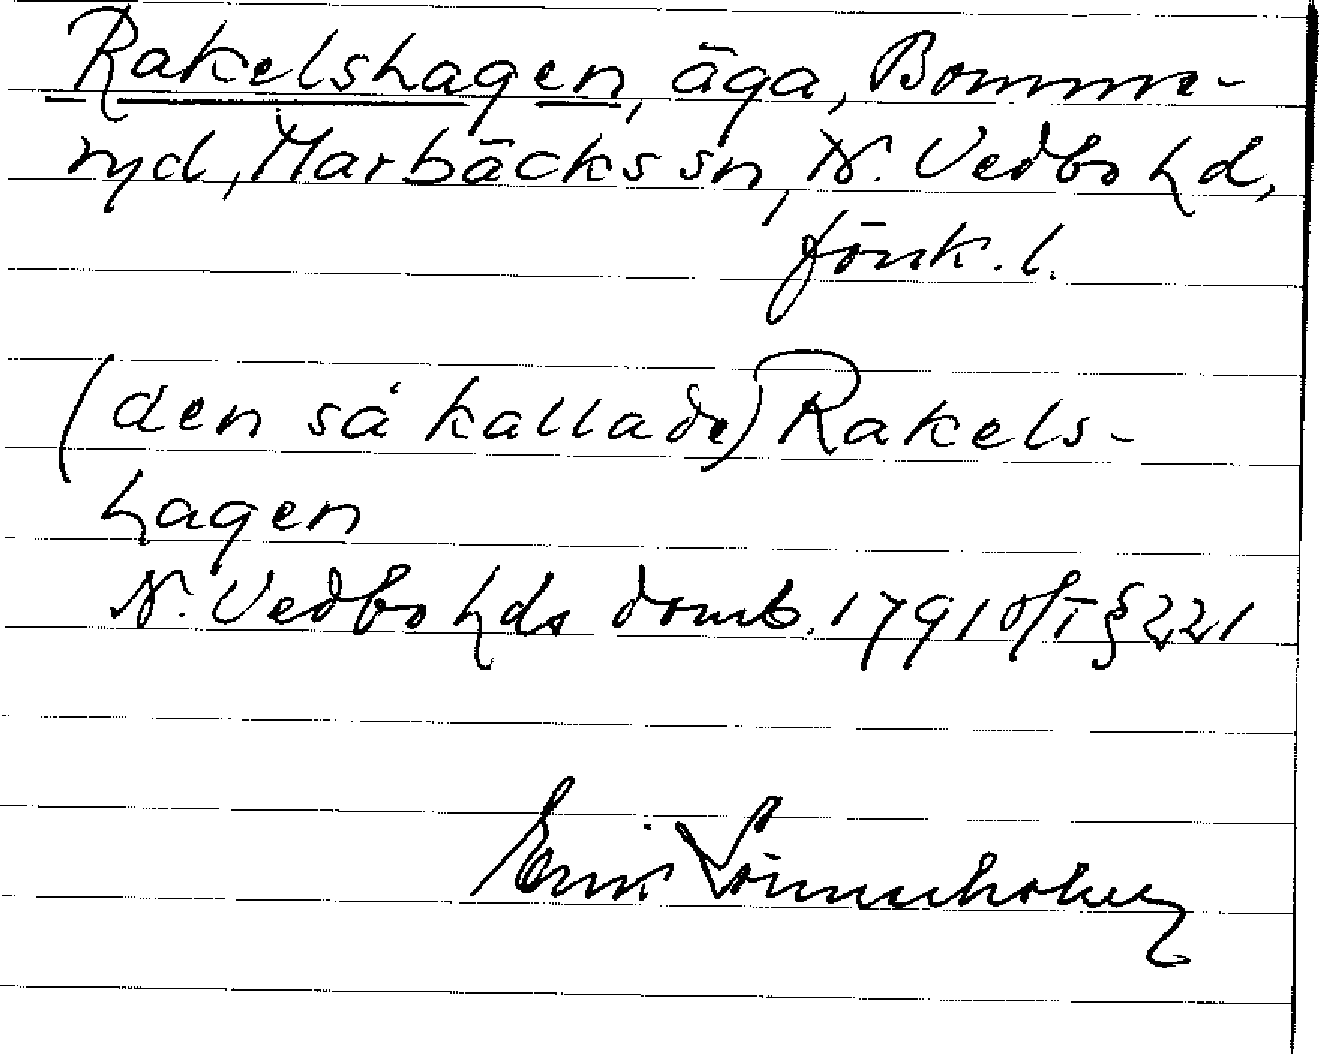 Rakelshagen, äga, Bomme-
ryd, Marbäcks sn, N. Vedbo hd,
Jönk. l.
(den så kallade) Rakels-
hagen
N. Vedbo hds domb. 1791 § 221
Erik